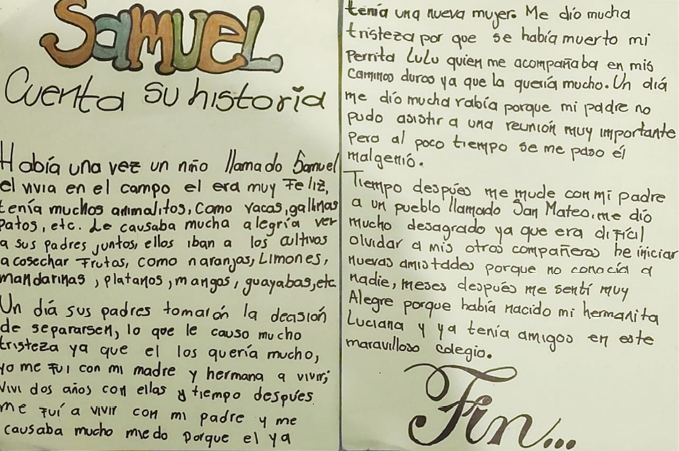 Samuel
Cuenta su historia
Había una vez un niño llamado Samuel
el vivia en el campo el era muy Feliz,
tenía muchos animalitos, como vacas, gallinas
patos, etc. Le causaba mucha alegría ver
a sus padres juntos, ellos iban a los cultivos
a cosechar frutas, como naranjas, Limones,
mandarinas, platanos, mangos, guayabas, etc
Un día sus padres tomarón la decasión
de separarsen, lo que le causo mucho
tristeza ya que el los quería mucho,
yo me fui con mi madre y hermana a vivir,
vivi dos años con ellas y tiempo despues
me fuí a vivir con mi padre y me
causaba mucho miedo porque el ya
tenía una nueva mujer. Me dío mucha
tristeza por que se había muerto mi
Perrita Lulu quien me acompañaba en mis
caminos duros ya que la quería mucho. Un día
me dío mucha rabía porque mi padre no
pudo asistir a una reunión muy importante
pero al poco tiempo se me paso él
malgenio.
Tiempo después me mude con mi padre
a un pueblo llamado San Mateo, me dío
mucho desagrado ya que era difícil
olvidar a mis otros compañeros he iniciar
nuevas amistades porque no conocía a
nadie, meses después me sentí muy
Alegre porque había nacido mi hermanita
Luciana y ya tenía amigos en este
maravilloso colegio.
Fin...